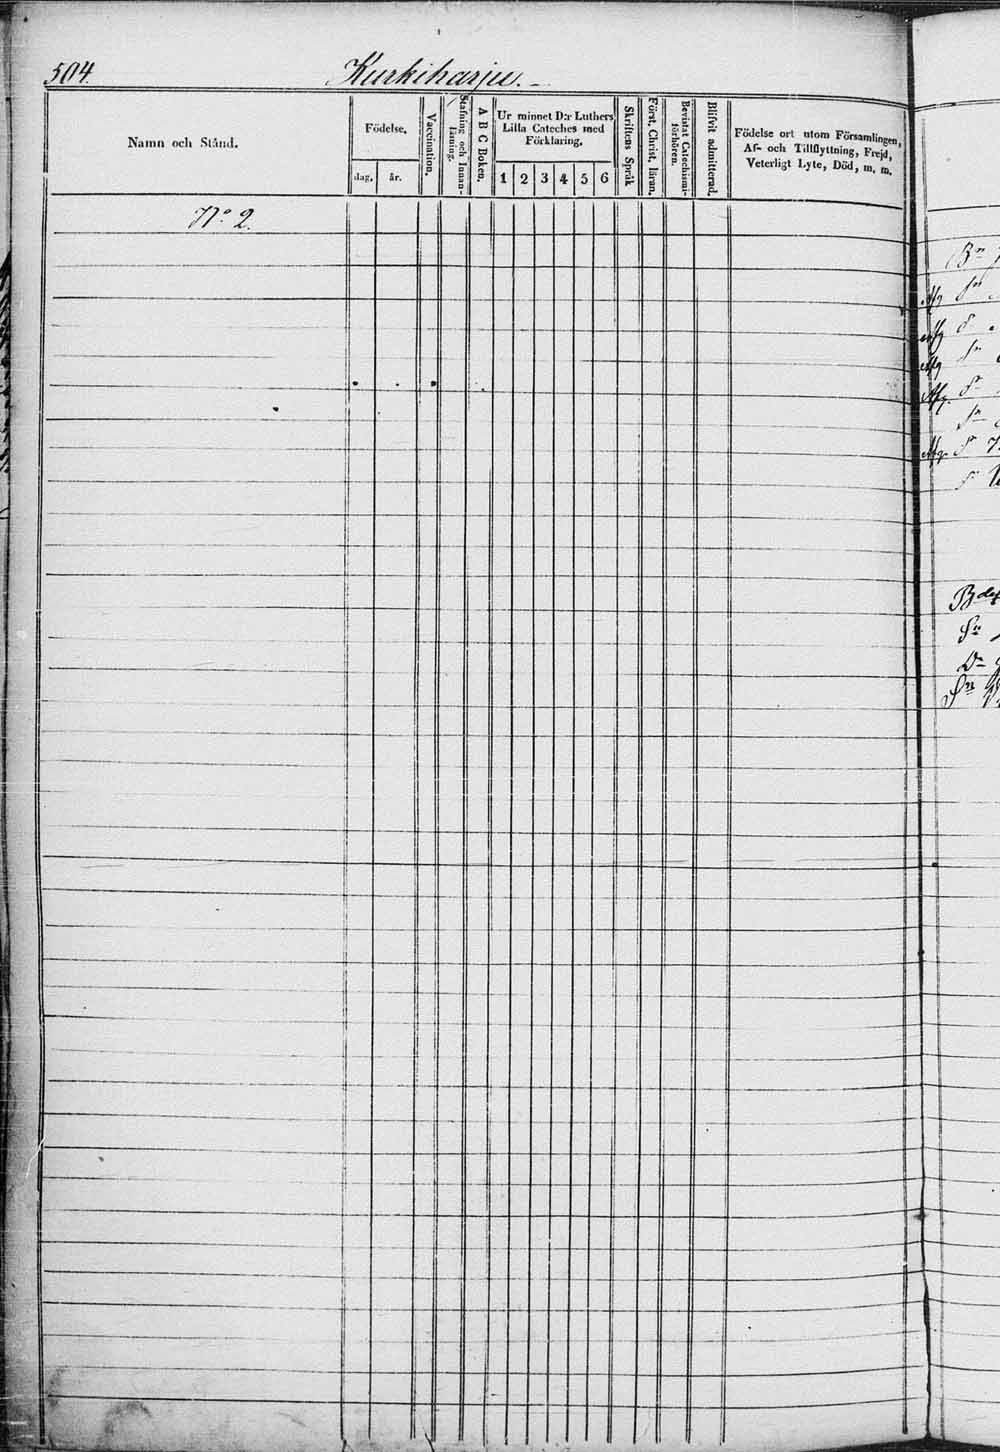 504.
Kurkiharju.
Namn och Stånd.
Födelse.
dag.
år.
Vaccination.
Stafning och Innan-
läsning.
A B C Boken.
Ur minnet D:r Luthers
Lilla Cateches med
Förklaring.
1 2 3 4 5 6
Skriftens Språk
Först. Christ. läran.
Bevistat Catechismi-
förhören.
Blifvit admitterad.
Födelse ort utom Församlingen,
Af- och Tillflyttning, Frejd,
Veterligt Lyte, Död, m. m.
N:o 2.